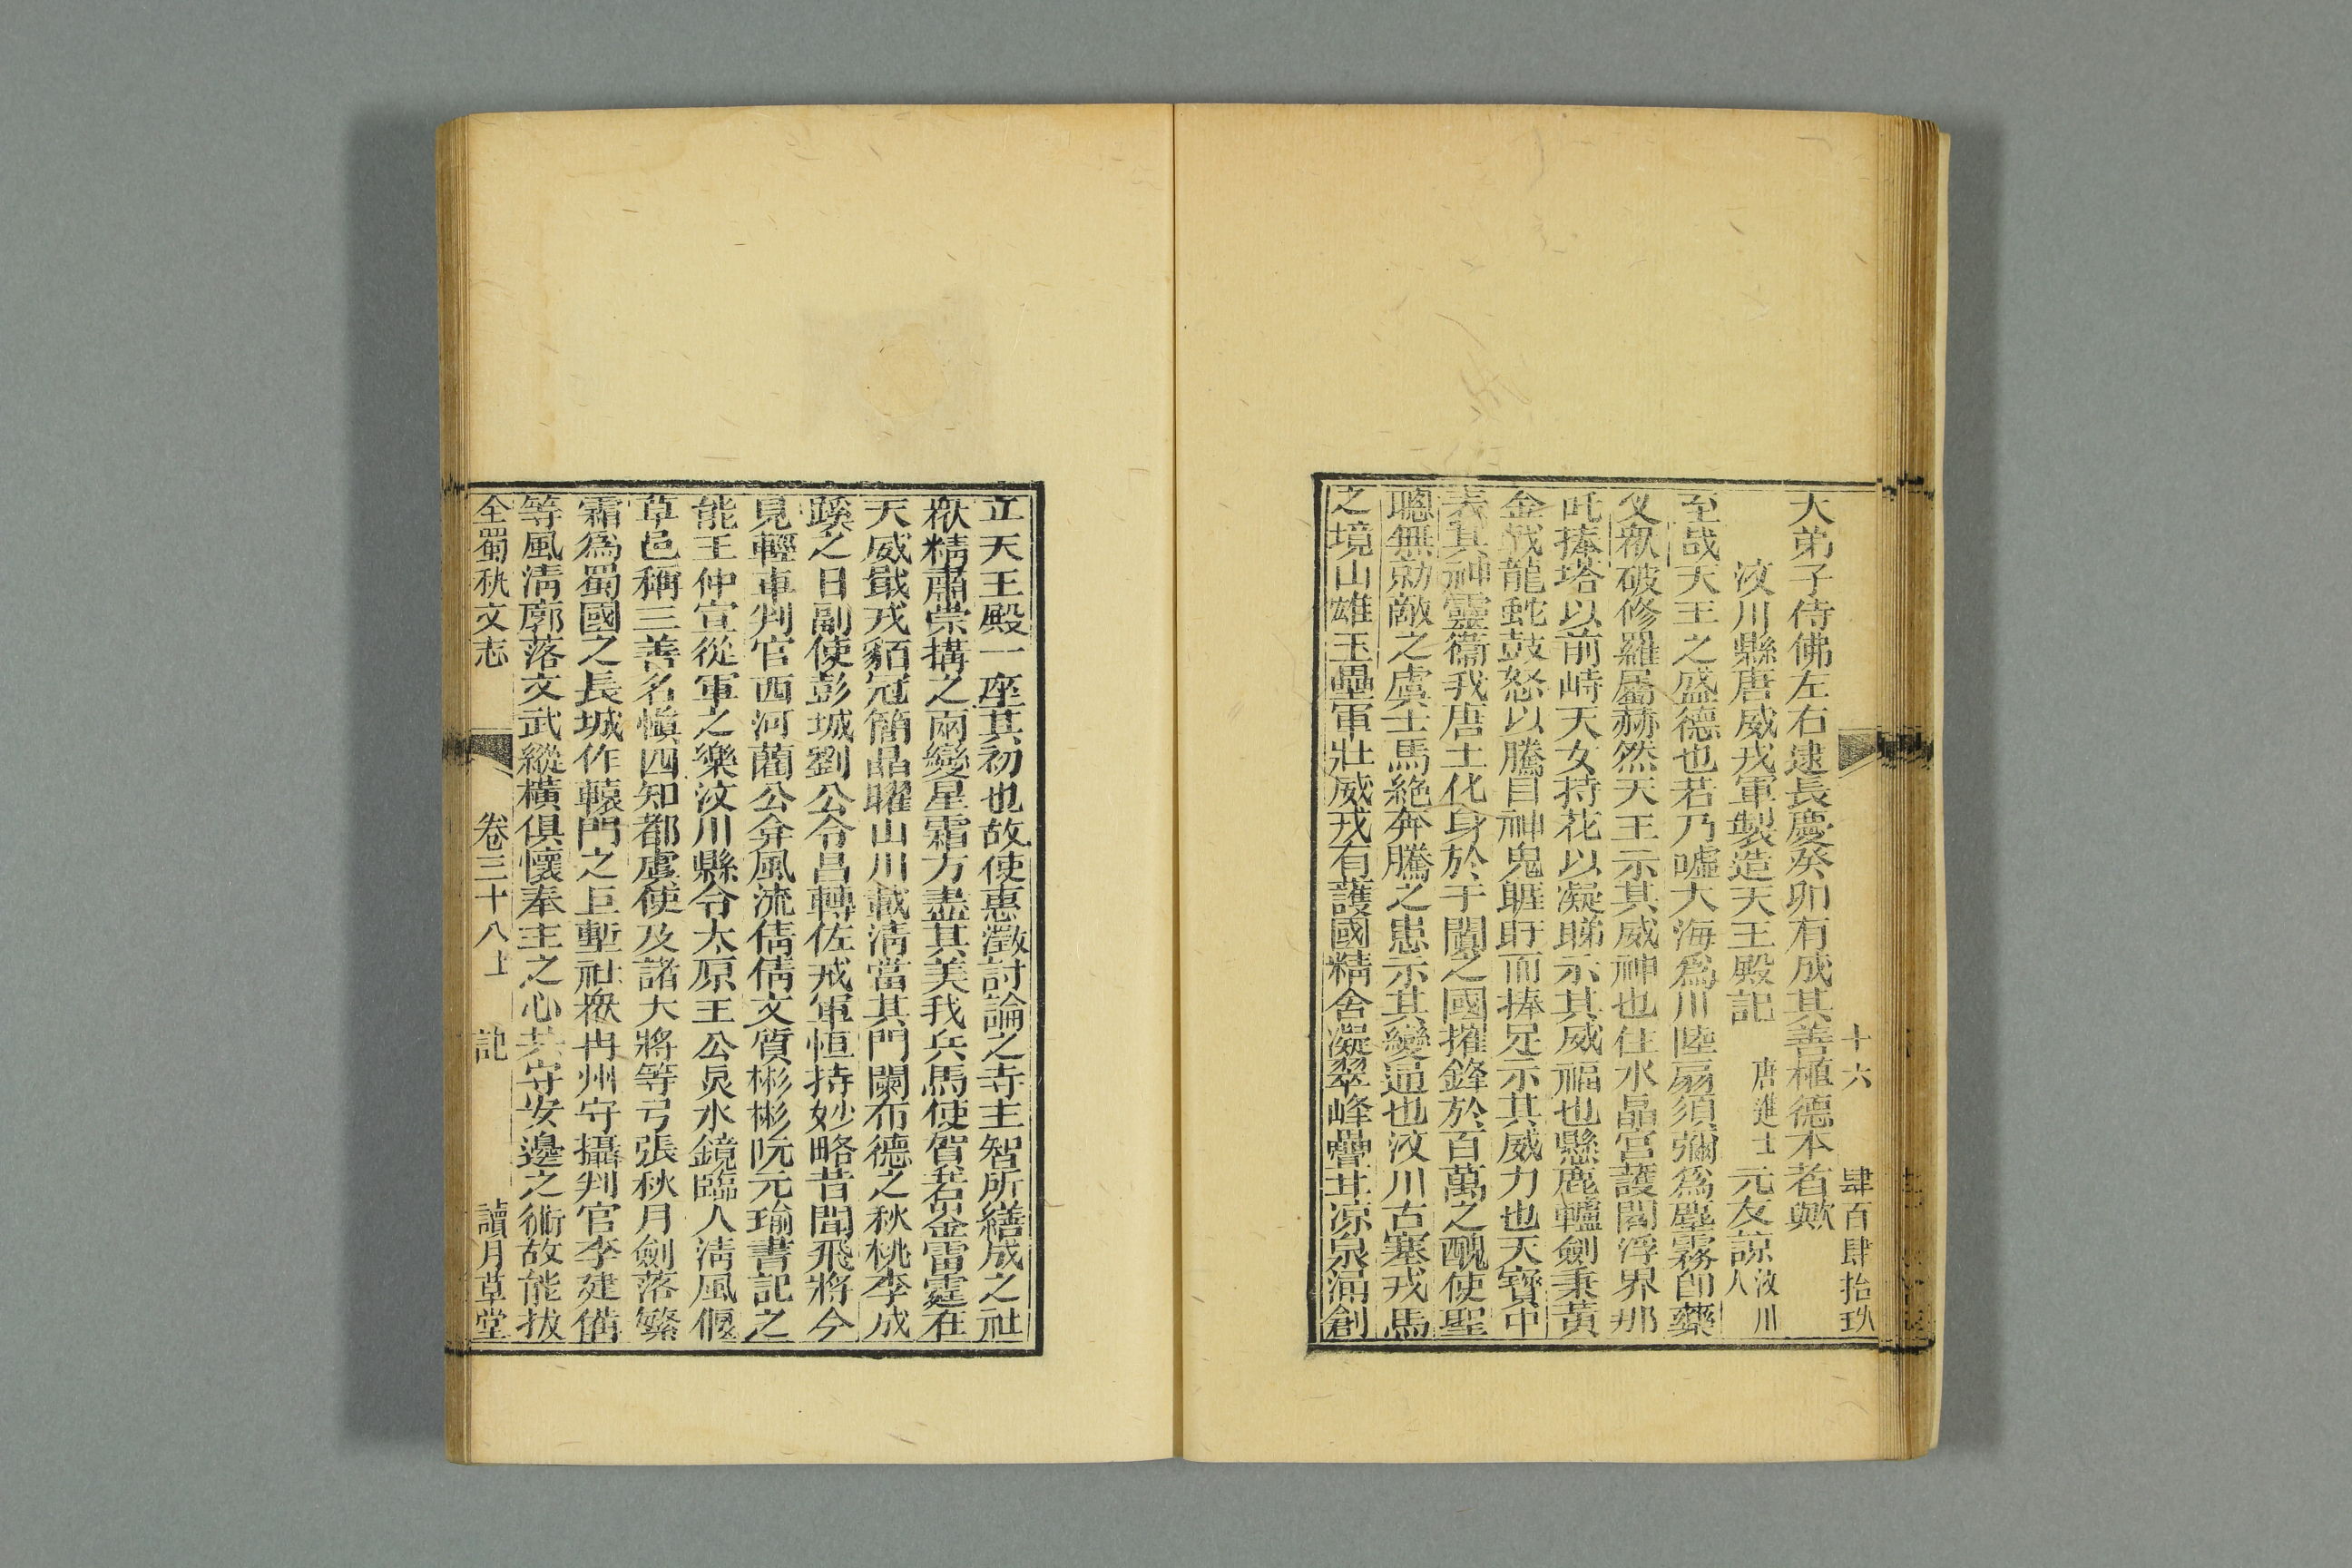 十六 肆百肆拾玖
大弟子侍佛左右逮長慶癸卯有成其善植德本者歟
汶川縣唐威戎軍製造天王殿記 唐進士元友諒汶川人
至哉天王之盛德也若乃噓大海爲川陸扇須彌爲塵霧卽藥
叉衆破修羅屬赫然天王示其威神也住水晶宮護閻浮界那
吒捧塔以前峙天女持花以凝睇示其威福也懸鹿轤劍秉黃
金戟龍虵鼓怒以騰目神鬼睚盱而捧足示其威力也天寶中
表其神靈衞我唐土化身於于闐之國摧鋒於百萬之醜使聖
聰無勍敵之虞士馬絶奔騰之患示其變通也汶川古塞戎馬
之境山雄玉壘軍壯威戎有護國精舍凝翠峰疊茸凉泉涌創
立天王殿一座其初也故使惠澂討論之寺主智所繕成之祉
衆精肅崇搆之兩變星霜方盡其美我兵馬使賀若釡雷霆在
天威戢戎貊冠簡晶曜山川載淸當其門闌布德之秋桃李成
蹊之日副使彭城劉公令昌轉佐戒軍恒持妙略昔聞飛將今
見輕車判官西河藺公弁風流倩倩文質彬彬阮元瑜書記之
能王仲宣從軍之樂汶川縣令太原王公炅水鏡臨人淸風偃
草邑稱三善名愼四知都虞使及諸大將等弓張秋月劍落繁
霜爲蜀國之長城作轅門之巨塹祉衆冉州守攝判官李建備
等風淸廓落文武縱橫俱懷奉主之心共守安邊之術故能拔
全蜀秇文志 卷三十八上 記 讀月草堂